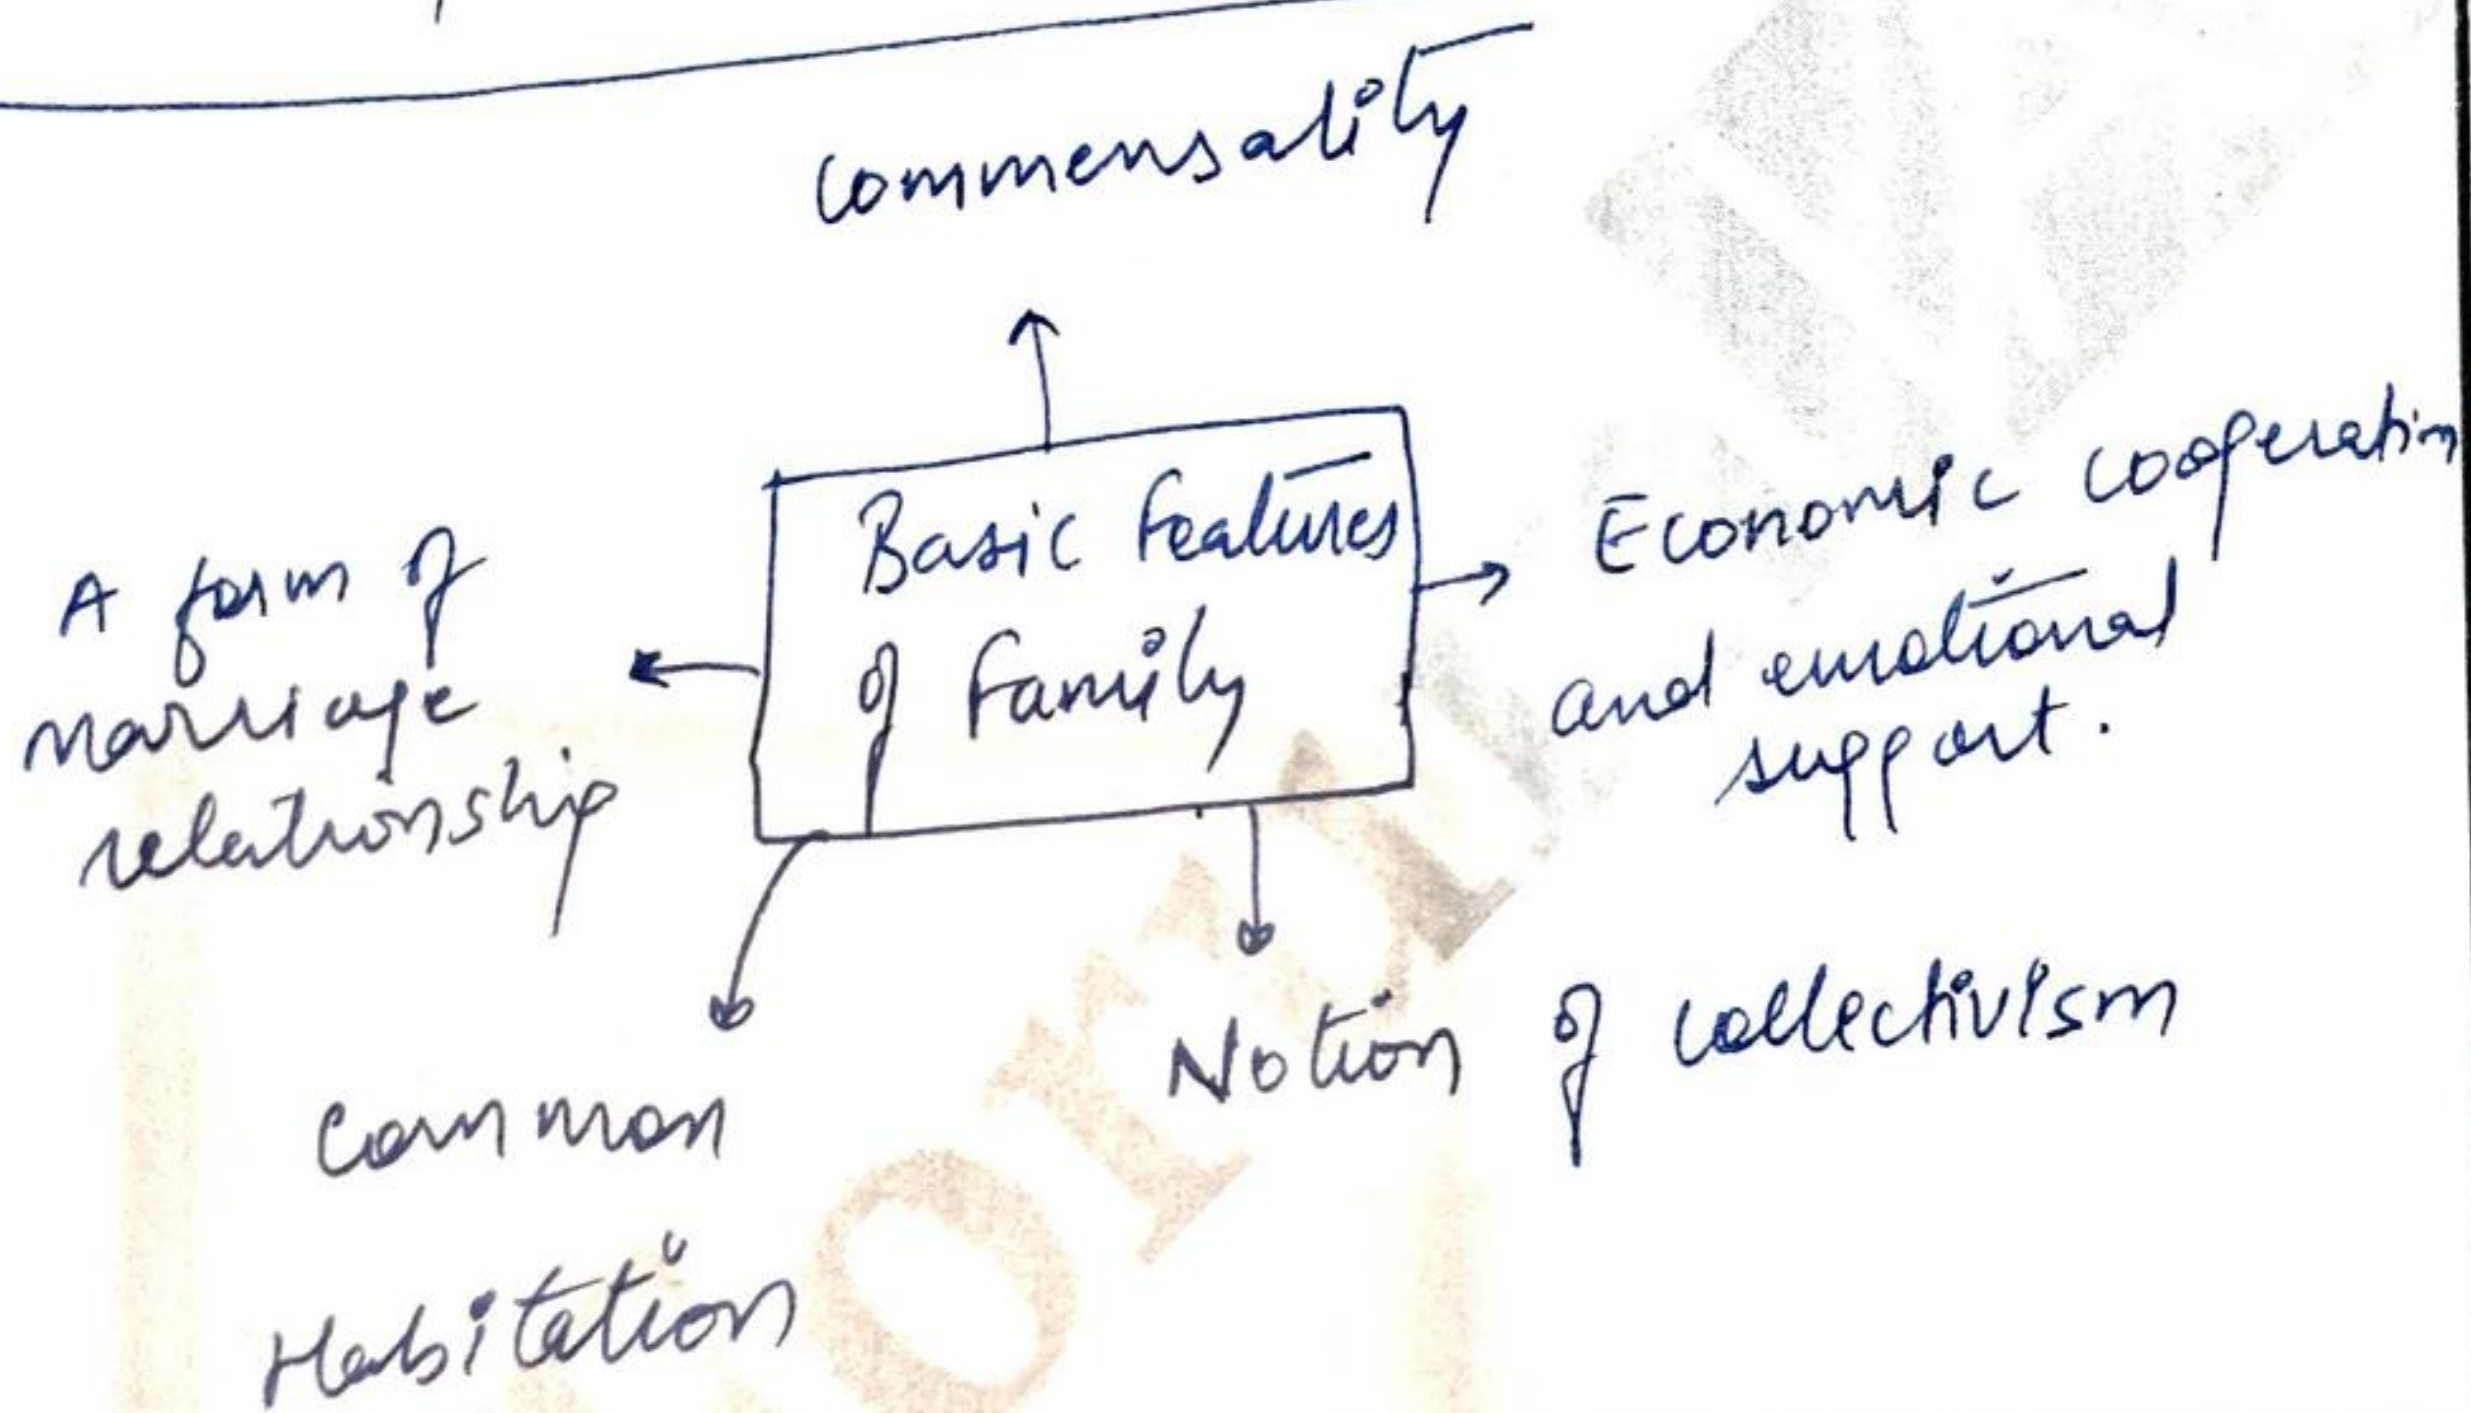 Commensality
Basic Features
of Family
A form of
marriage
relationship
Economic cooperation
and emotional
support.
Notion of collectivism
Common
Habitation